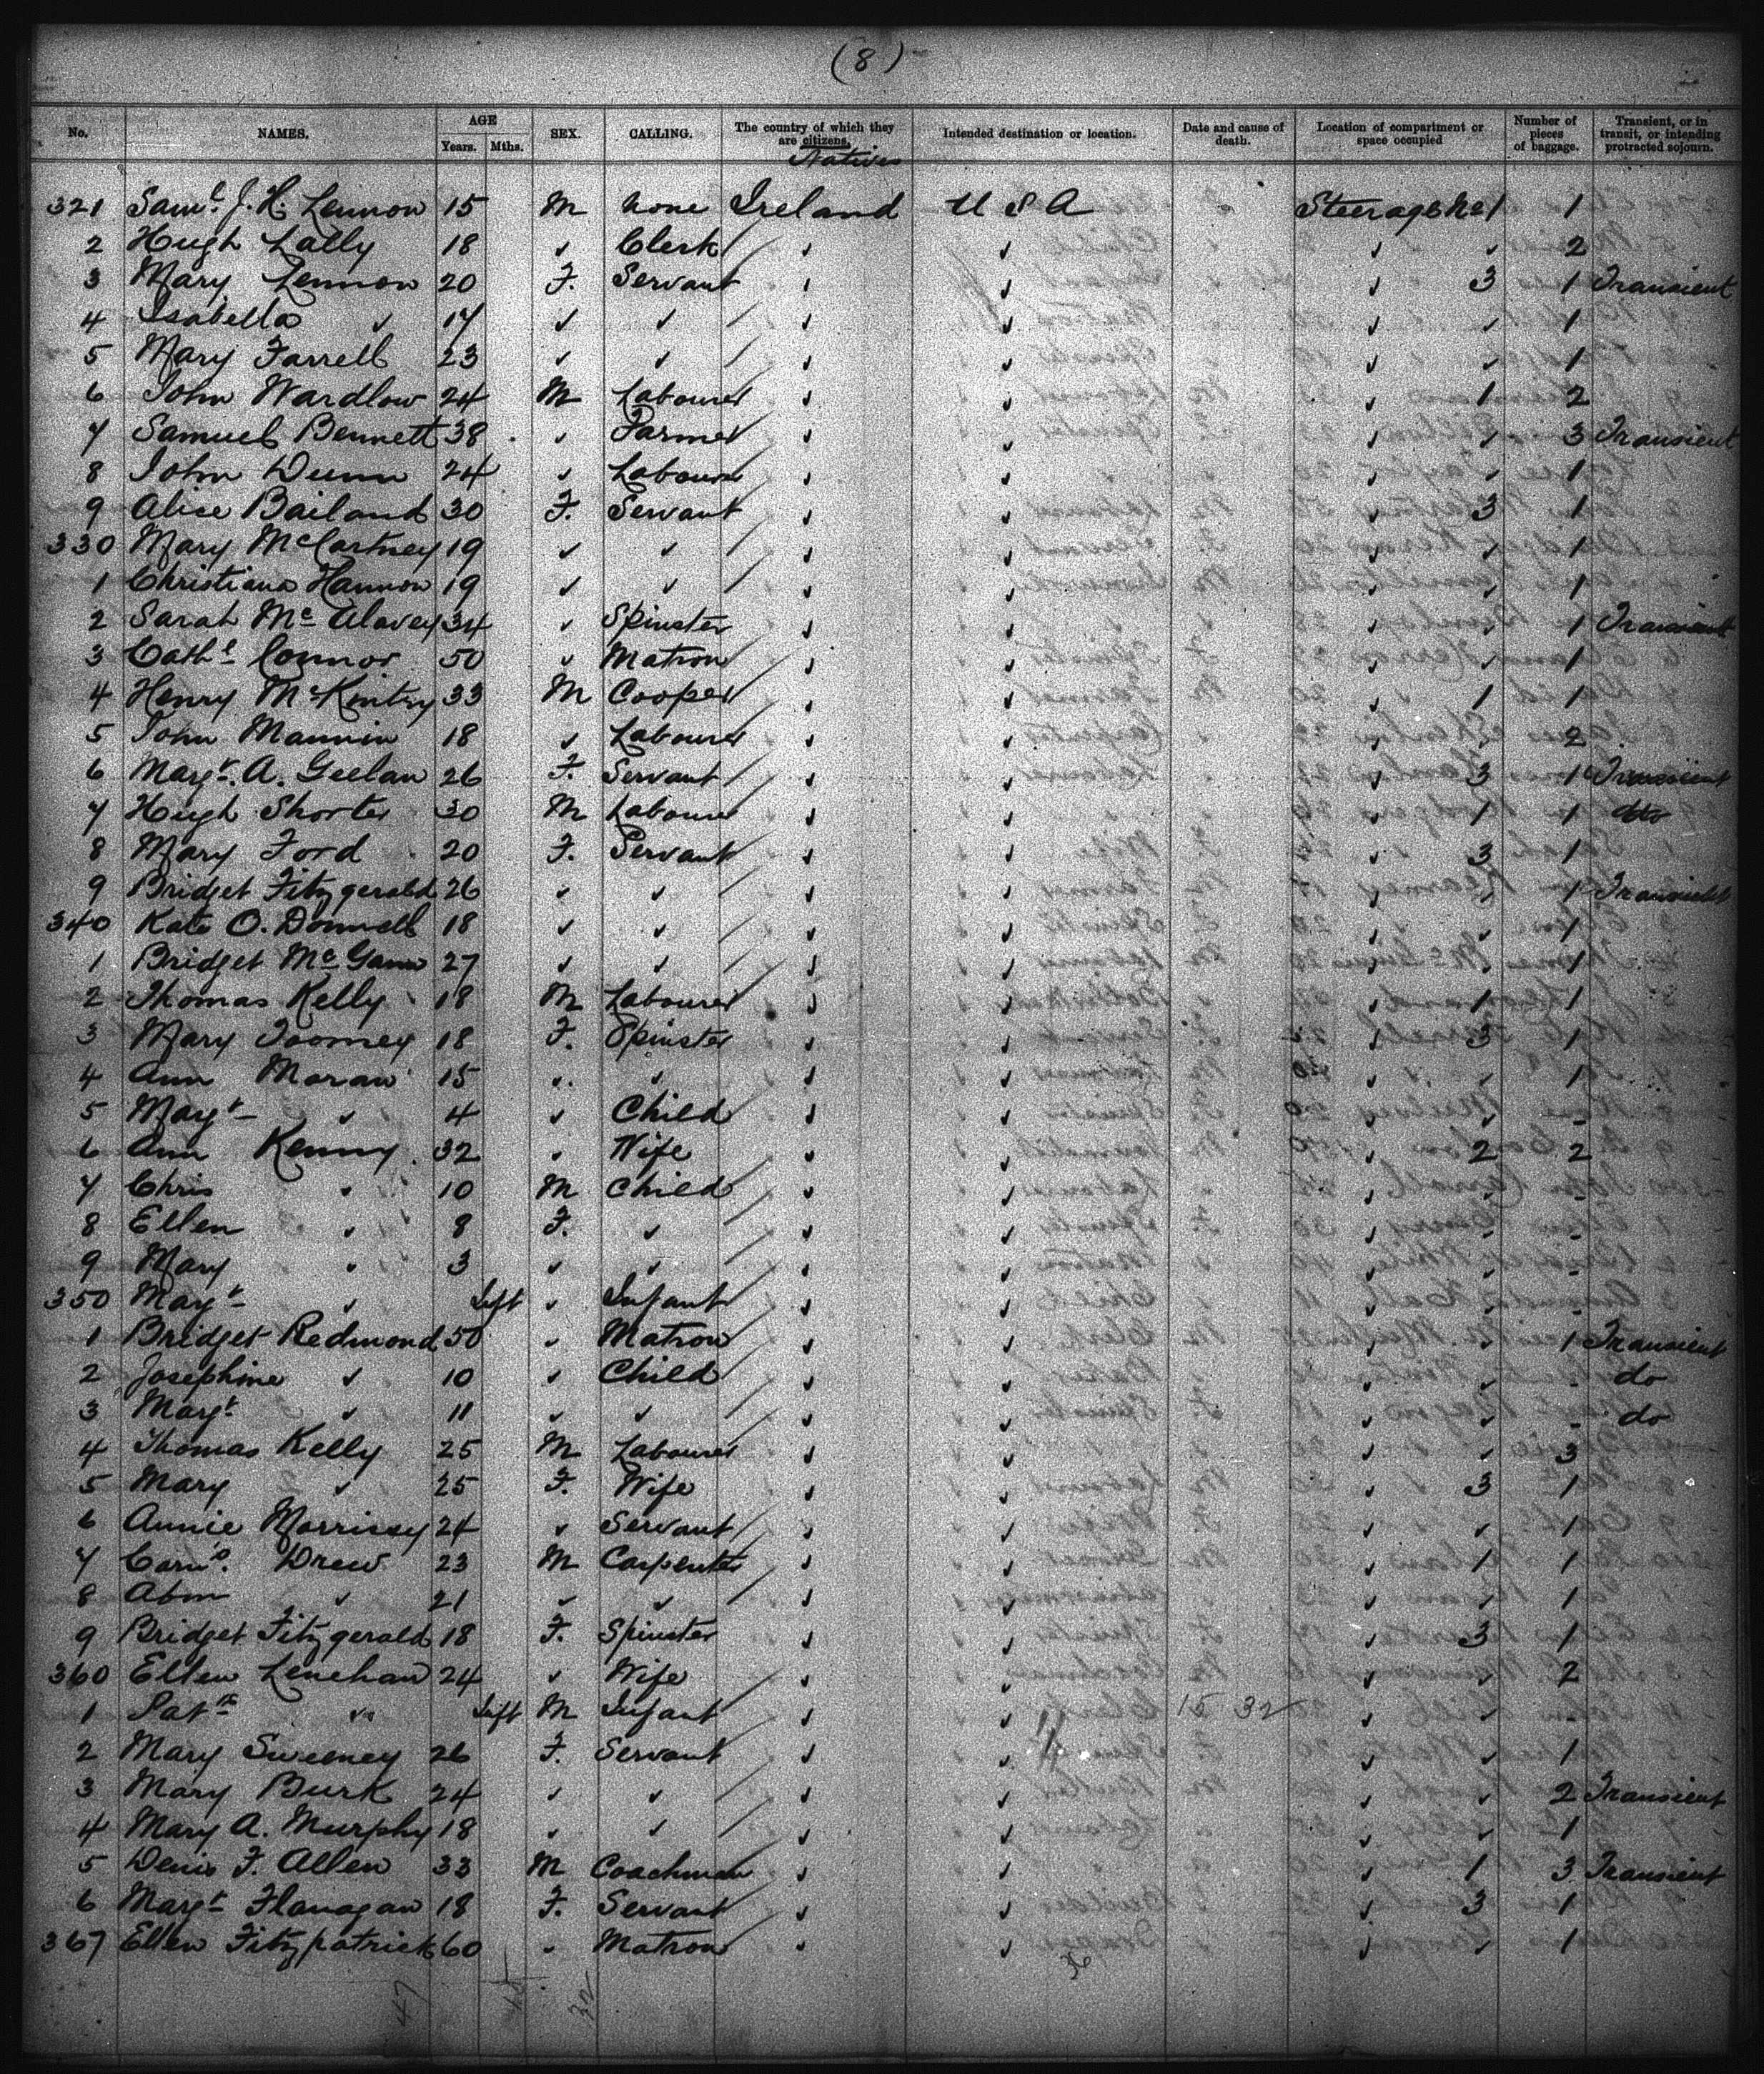 (8)
No. NAMES. AGE Years. Mths. SEX. CALLING. The country of which they are citizens. Natives Intended destination or location. Date and cause of death. Location of compartment or space occupied Number of pieces of baggage. Transient, or in transit, or intending protracted sojourn.
321 Saml. J. H. Lennon 15 M None Ireland U S A Steerage No 1 1
2 Hugh Lally 18 " Clerk " " " " 2
3 Mary Lennon 20 F. Servant " " " 3 1 Transient
4 Isabella " 17 " " " " " " 1
5 Mary Farrell 23 " " " " " " 1
6 John Wardlow 24 M Labourer " " " 1 2
7 Samuel Bennett 38 " Farmer " " " " 3 Transient
8 John Dunn 24 " Labourer " " " " 1
9 Alice Bailand 30 F. Servant " " " 3 1
330 Mary McCartney 19 " " " " " " 1
1 Christiana Hannon 19 " " " " " " 1
2 Sarah Mc Alavey 34 " Spinster " " " " 1 Transient
3 Cathe Connor 50 " Matron " " " " 1
4 Henry McKintry 33 M Cooper " " " 1 1
5 John Mannin 18 " Labourer " " " " 2
6 Margt. A. Geelan 26 F. Servant " " " 3 1 Transient
7 Hugh Shorter 30 M Labourer " " " 1 1 do
8 Mary Ford 20 F. Servant " " " 3 1
9 Bridget Fitzgerald 26 " " " " " " 1 Transient
340 Kate O. Donnell 18 " " " " " " 1
1 Bridget McGann 27 " " " " " " 1
2 Thomas Kelly 18 M Labourer " " " 1 1
3 Mary Toomey 18 F. Spinster " " " 3 1
4 Ann Moran 15 " " " " " " 1
5 Margt " 4 " Child " " " " -
6 Ann Kenny 32 " Wife " " " 2 2
7 Chris " 10 M Child " " " " -
8 Ellen " 8 F. " " " " " -
9 Mary " 3 " " " " " " -
350 Margt " Inft " Infant " " " " -
1 Bridget Redmond 50 " Matron " " " " 1 Transient
2 Josephine " 10 " Child " " " " - do
3 Margt " 11 " " " " " " - do
4 Thomas Kelly 25 M Labourer " " " " 3
5 Mary " 25 F. Wife " " " 3 1
6 Annie Morrissy 24 " Servant " " " " 1
7 Corns. Drew 23 M Carpenter " " " 1 1
8 Abm " 21 " " " " " " 1
9 Bridget Fitzgerald 18 F. Spinster " " " 3 1
360 Ellen Lenehan 24 " Wife " " " " 2
1 Patk " Inft M Infant " " 15 32 " " -
2 Mary Sweeney 26 F. Servant " " " " 1
3 Mary Burk 24 " " " " " " 2 Transient
4 Mary A. Murphy 18 " " " " " " 1
5 Denis F. Allen 33 M Coachman " " " 1 3 Transient
6 Margt Flanagan 18 F. Servant " " " 3 1
367 Ellen Fitzpatrick 60 " Matron " " " " 1
47 15 32